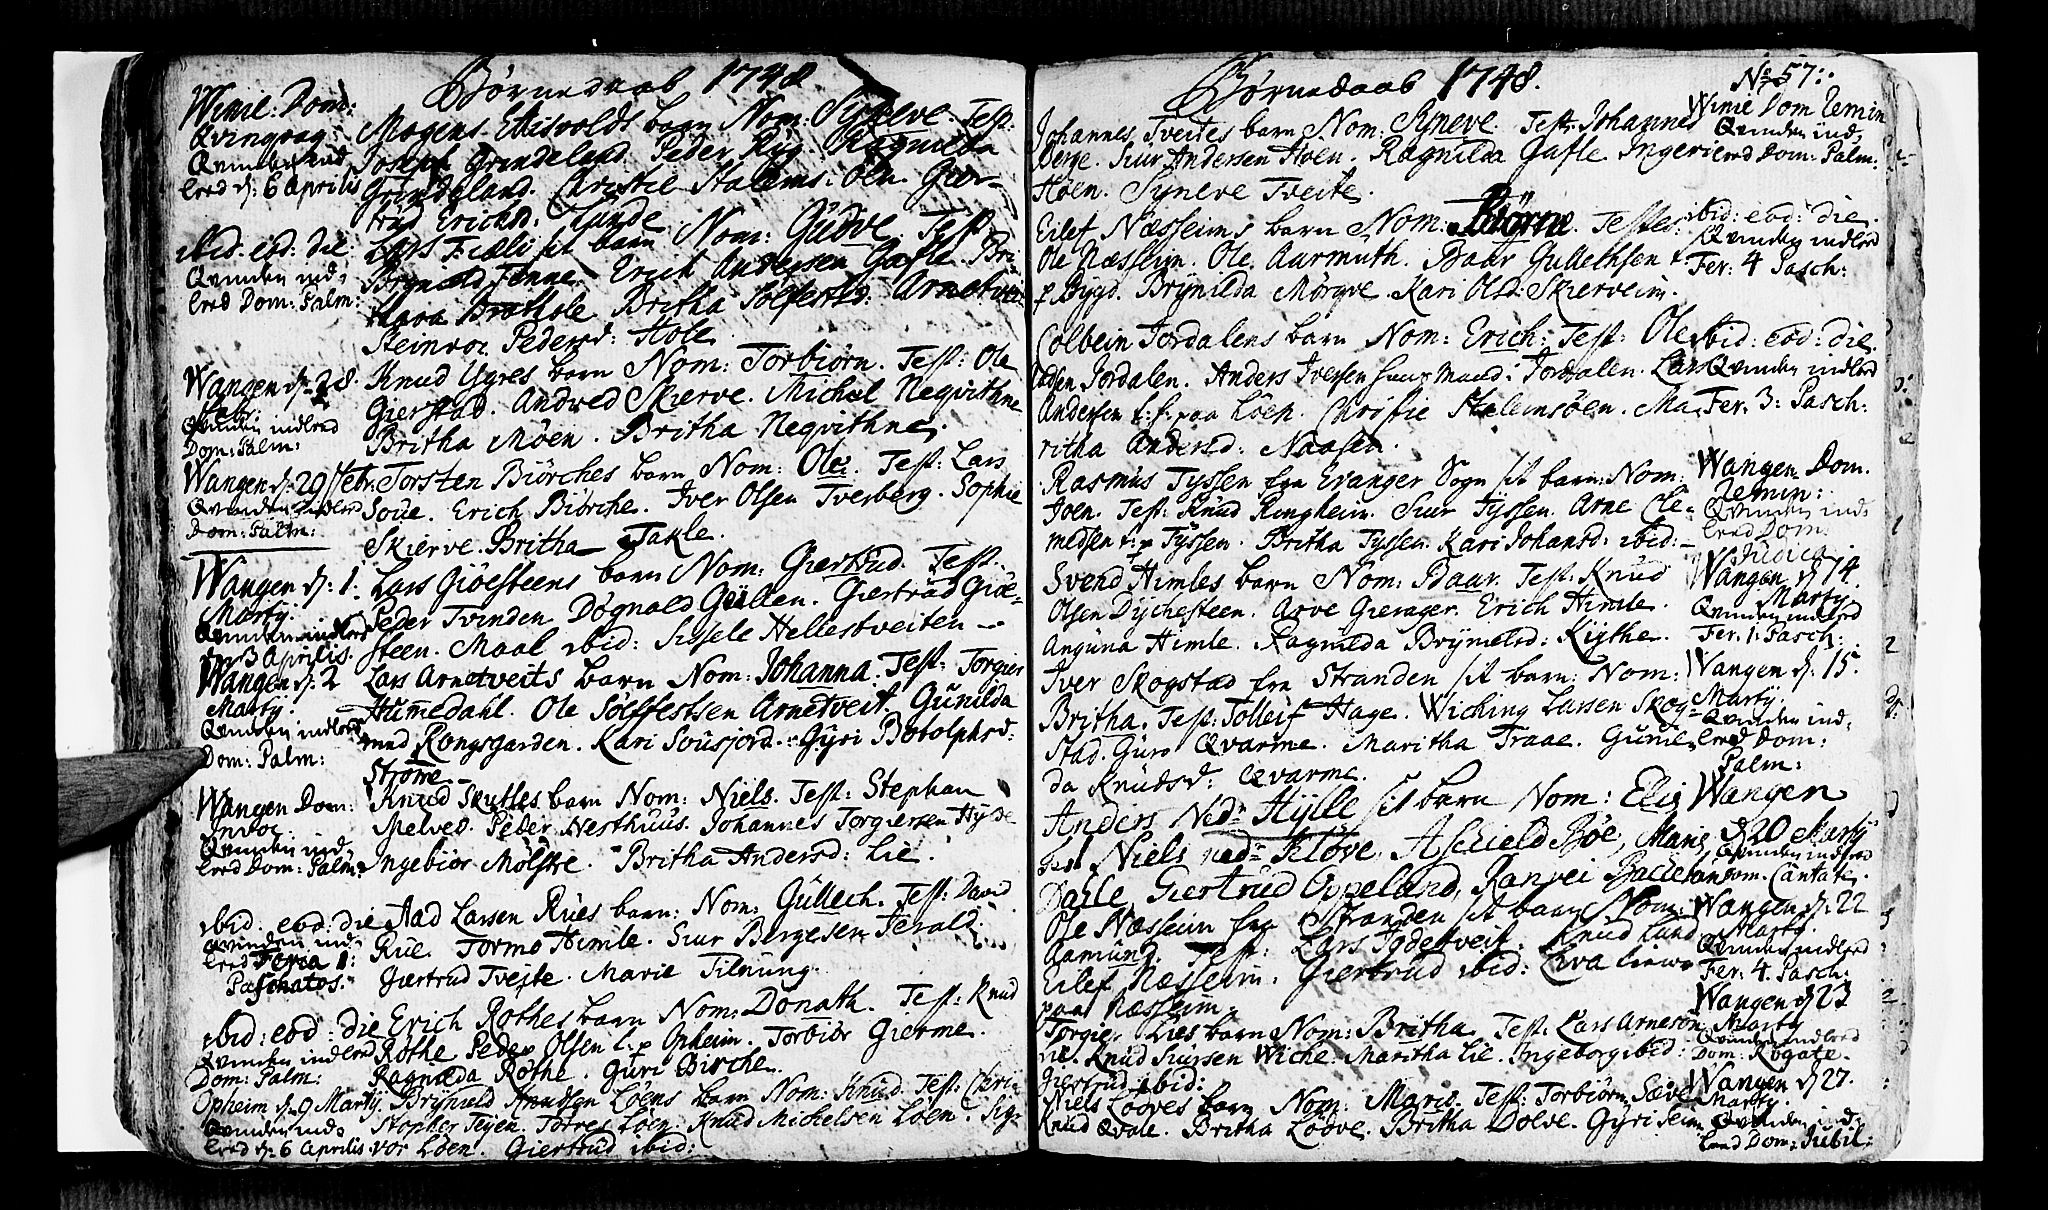 Børnedaab 1748
Winie: Dom:
Qvingvag:
Qvinden ind
lred d: 6 Aprilis
Mogens Ettisvolds barn Nom: Syneve. Test:
Joseph Grindeland. Peder Ryg. Ragnilda
Grindeland. Christie Stalems: Øen. Gier-
trud Erichd: Klunde
ibid: eod: die:
Qvinden ind-
lred Dom: Palm:
Lars Fiæli sit barn Nom: Gudve. Test:
Brynild Fenne. Erich Andersen Gafle. Bri-
Brekhole Britha Sølfestd: Arnetvei
Steinvor Pedersd: Hole.
Wangen d: 28.
Febr:
Qvinden indlred
Dom: Palm:
Knud Ygres barn Nom: Torbiørn. Test: Ole
Gierstad. Andved Skierve. Michel Neqvithne
Britha Møen. Britha Neqvithne.
Wangen d: 29 Febr.
Qvinden indlred
Dom: Palm:
Torsten Biørches barn Nom: Ole. Test: Lars
Soue. Erich Biørche. Iver Olsen Tverberg. Sophie
Skierve. Britha Takle.
Wangen d: 1.
Marty:
Qvinden indlred
d: 3 Aprilis.
Lars Giøesteens barn Nom: Giertrud. Test:
Peder Tvinden Døgnald Gullen. Giertrud Giøe-
steen. Maal ibid: Sissele Hellestveiten
Wangen d: 2
Marty.
Qvinden indlred
Dom: Palm:
Lars Arnetveits barn Nom: Johanna. Test: Torgier
Humedahl. Ole Sølfestsen Arnetveit. Gunilda
med Rongsgarden. Kari Sousjord. Gyri Botolphsd:
Strome
Wangen Dom:
Invoc.
Qvinden ind-
lred Dom: Palm:
Knud Skutles barn Nom: Niels. Test: Stephan
Melved. Peder Nesthuus. Johannes Torgiersen Hyde
Ingebior Mølstre. Britha Andersd: Lie.
ibid. eod: die
Qvinden ind-
lred Feria 1:
Paschatos.
Aad Larsen Rues barn: Nom: Gullech. Test: David
Rue. Tormo Himle. Siur Børgesen Ferald:
Giertrud Tveite. Marie Tilnung.
ibid: eod: die
Qvinden indlred
Dom: Palm:
Erich Rothes barn Nom: Donath. Test: Knud
Røthe Peder Olsen t. p Opheim. Torbiør Gierme.
Ragnilda Rothe. Guri Birche.
Opheim d: 9 Marty.
Qvinden ind-
lred d: 6 Aprilis
Brynield Knudsen Løens barn Nom: Knud. Test: Chri-
stopher Tejen. Torres Løen. Knud Michelsen Løen. Sig-
vor Løen. Giertrud ibid:
Børnedaab 1748.
No 57:
Johannes Tveites barn Nom: Syneve. Test: Johannes
Berge. Siur Andersen Hoen. Ragnilda Gafle Ingeri
Hoen. Syneve Tveite.
Winie Dom Remin
Qvinden ind-
lred Dom: Palm:
Eilef Næsseims barn Nom: Biørne. Testes:
Ole Næsseim. Ole Aarmuth. Baar Gullechsen t
p Bygd. Brynilda Mørqve. Kari Olsd: Skierveim.
ibid: eod: die.
Qvinden indlred
Fer: 4 Pasch:
Colbein Jordalens barn Nom: Erich: Test: Ole
Jordalen. Anders Iversen Huus Mand: Jordalen. Lars
Andersen t. h: paa Løen. Christie Stalemsøen. Ma-
ritha Andersd: Naasen.
ibid: eod: die.
Qvinden indlred
Fer: 3: Pasch:
Rasmus Tyssen fra Evanger Sogn sit barn: Nom:
Joen. Test: Knud Ringheim. Siur Tyssen. Arne Cle-
medsen t: p Tyssen. Britha Tyssen. Kari Johansd: ibid:
Wangen Dom.
Remin:
Qvinden ind-
lred Dom.
Judica.
Svend Himles barn Nom: Baar. Test: Knud
Olsen Dychesteen. Arve Gierager. Erich Himle.
Anguna Himle. Ragnilda Brynielsd: Kythe.
Wangen d 14.
Marty
Qvinden indlred
Fer: 1: Pasch:
Iver Skogstad fra Stranden sit barn: Nom:
Britha. Test: Tolleif Hage. Wiching Larsen Skog-
stad. Guro Qvarme. Maritha Traae. Gunil-
da Knudsd: Qvarme.
Wangen d: 15.
Marty.
Qvinden ind-
lred Dom:
Palm:
Anders Ned Hylle sit barn Nom: Elis
test Niels ned Kløve, Aschield Bøe, Maris
Dalle, Giertrud Oppeland, Ranvei
Wangen
d 20 Marty
Qvinden indlred
Dom: Cantate.
Ole Næsseim fra Stranden sit barn Nom:
Aamund. Test: Lars Tydetveit. Knud Lund
Eilef Næsseim. Giertrud ibid:
paa Næsseim.
Wangen d: 22
Marty.
Qvinden indlred
Fer: 4. Pasch:
Torgie. Lies barn Nom: Britha. Test: Lars Arneson
Lie. Knud Siursen Wiche. Maritha Lie. Ingeborg ibid:
Giertrud ibid:
Wangen d 23
Marty
Qvinden indlred
Dom: Rogate.
Niels Lodves barn Nom: Maris. Test: Torbiørn Sæve
Knud Qvale. Britha Lødve. Britha Dolve. Gyri Seim
Wangen d 27.
Marty.
Qvinden ind-
lred Dom: Jubil: